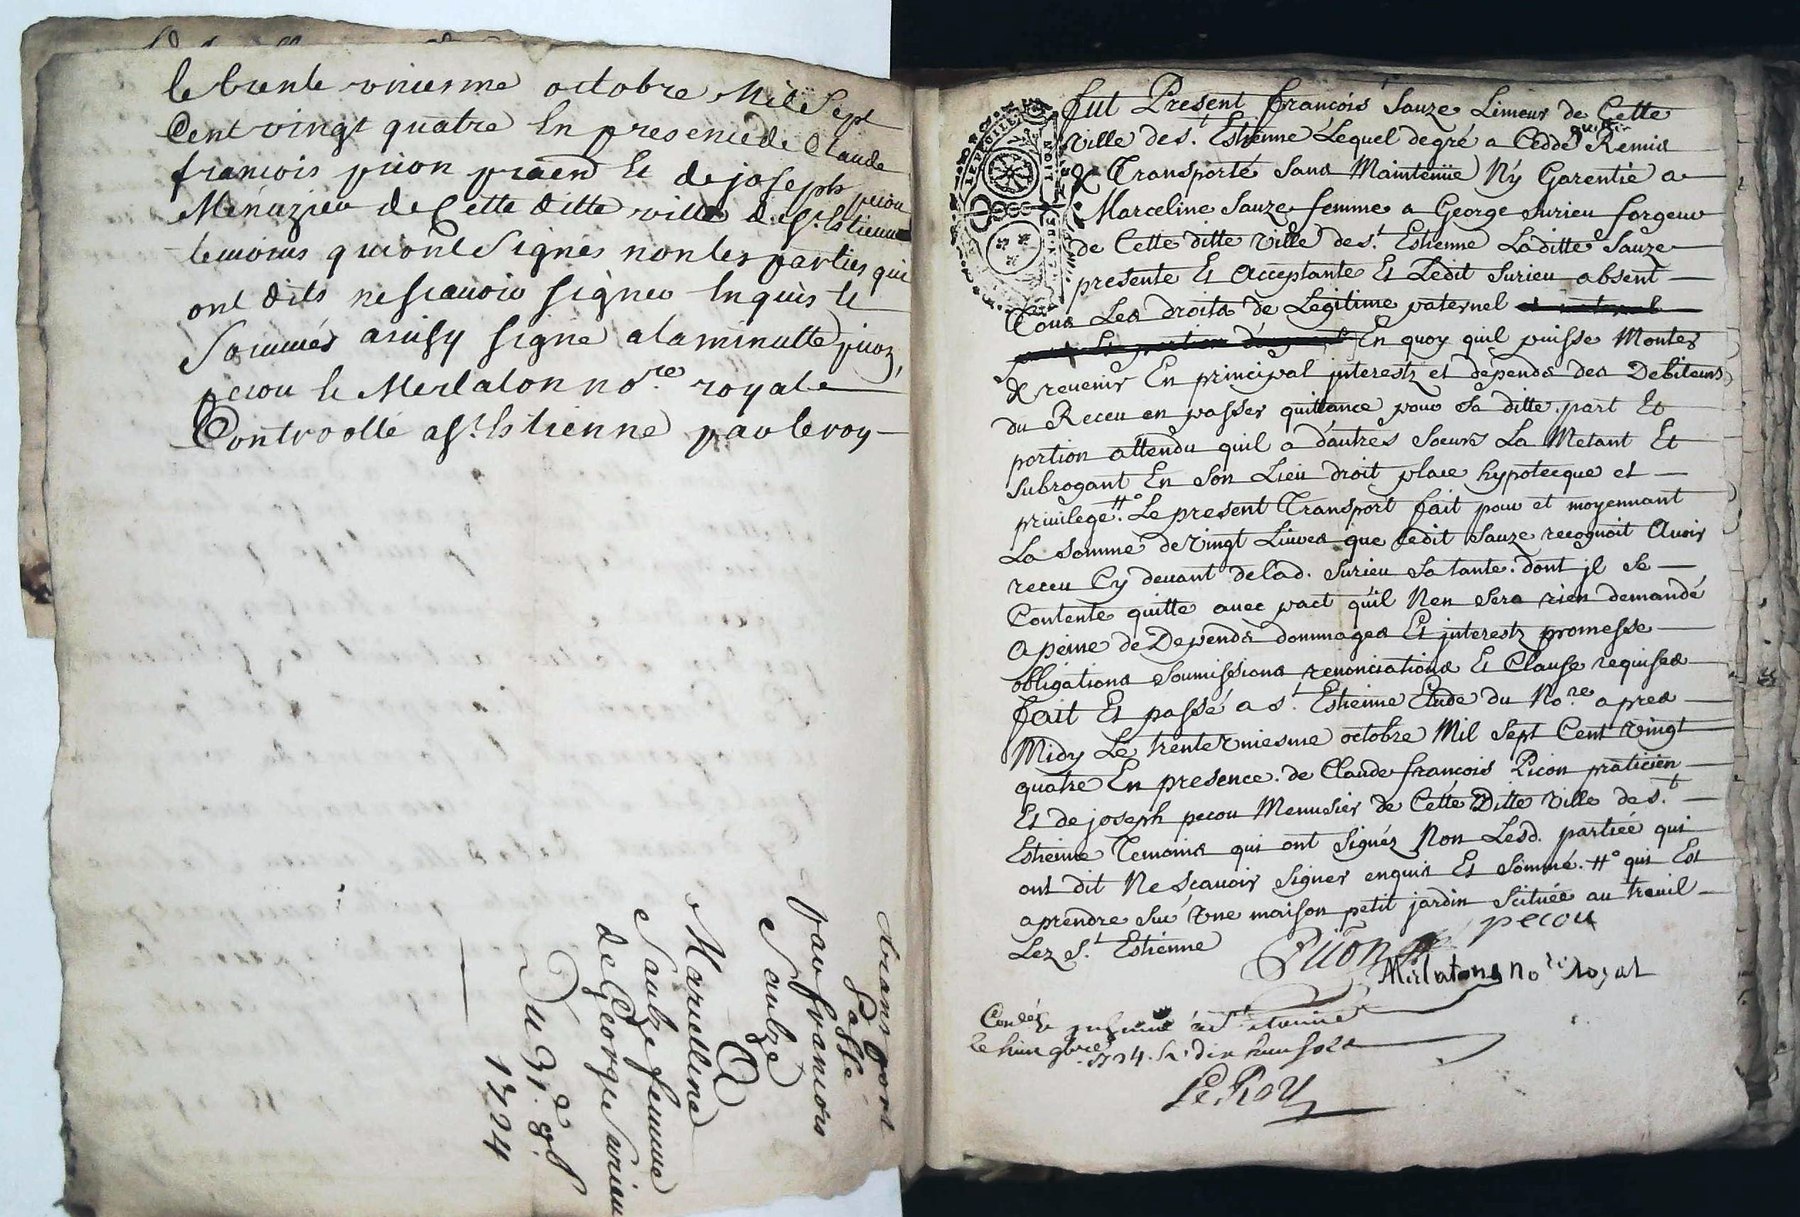 le trente uniesme octobre Mil Sept
Cent vingt quatre En presence de Claude
françois picon praēn Et de joseph pecou
Menuzieu de Cette ditte ville de St. Estienne
temoins qui ont Signés non les parties qui
ont dits ne scauoir signer Enquis Et
Sommés ainsy signé a la minutte picon,
pecou Et Merlaton nore. royal
Controollé a St. Estienne par leroy
transport
Passé
par francois
Sauze
A
Marcelline
Sauze femme
de George Surieu
Du 31e. 8b.
1724
LION
fut Present françois Sauze Limeur de Cette
Ville de St. Estienne Lequel de gré a Ceddé quitté Remis
& Transporté Sans Maintenüe Ny Garentie a
Marceline Sauze femme a George Surieu forgeur
de Cette ditte Ville de St. Estienne Laditte Sauze
presente Et Acceptante Et Ledit Surieu absent
Tous Les droits de Legitime paternel et maternel
part Et portion d'augment En quoy quil puisse Monter
& reuenir En principal interestz et dépends des Debiteurs
du Receu en passer quittance pour Sa ditte part Et
portion attendu quil a dautres Soeurs La Metant Et
Subrogant En Son Lieu droit place hypotecque et
priuilege #. Le present Transport fait pour et moyennant
La somme de Vingt Liures que Ledit Sauze recognoit Auoir
receu Cy deuant de lad. Surieu Sa tante. dont jl Se
Contente quitte auec pact quil Nen Sera rien demandé
A peine de Depends dommages Et interestz promesse
obligations Soumissions renonciations Et Clause requises
fait Et passé a St. Estienne Etude du Nore. apres
Midy Le trente Vniesme octobre Mil Sept Cent Vingt
quatre En presence de Claude françois Picon praticien
Et de joseph pecou Menusier de Cette Ditte Ville de St.
Estienne Temoins qui ont Signéz Non Lesd. partiée qui
ont dit Ne Scauoir Signer enquis Et Sommé. # qui Est
a prendre Sur Vne maison petit jardin Scituée au treuil
Lez St. Estienne
Picon pecou
Merlaton nore royal
a St. etienne
1724.
LeRoy